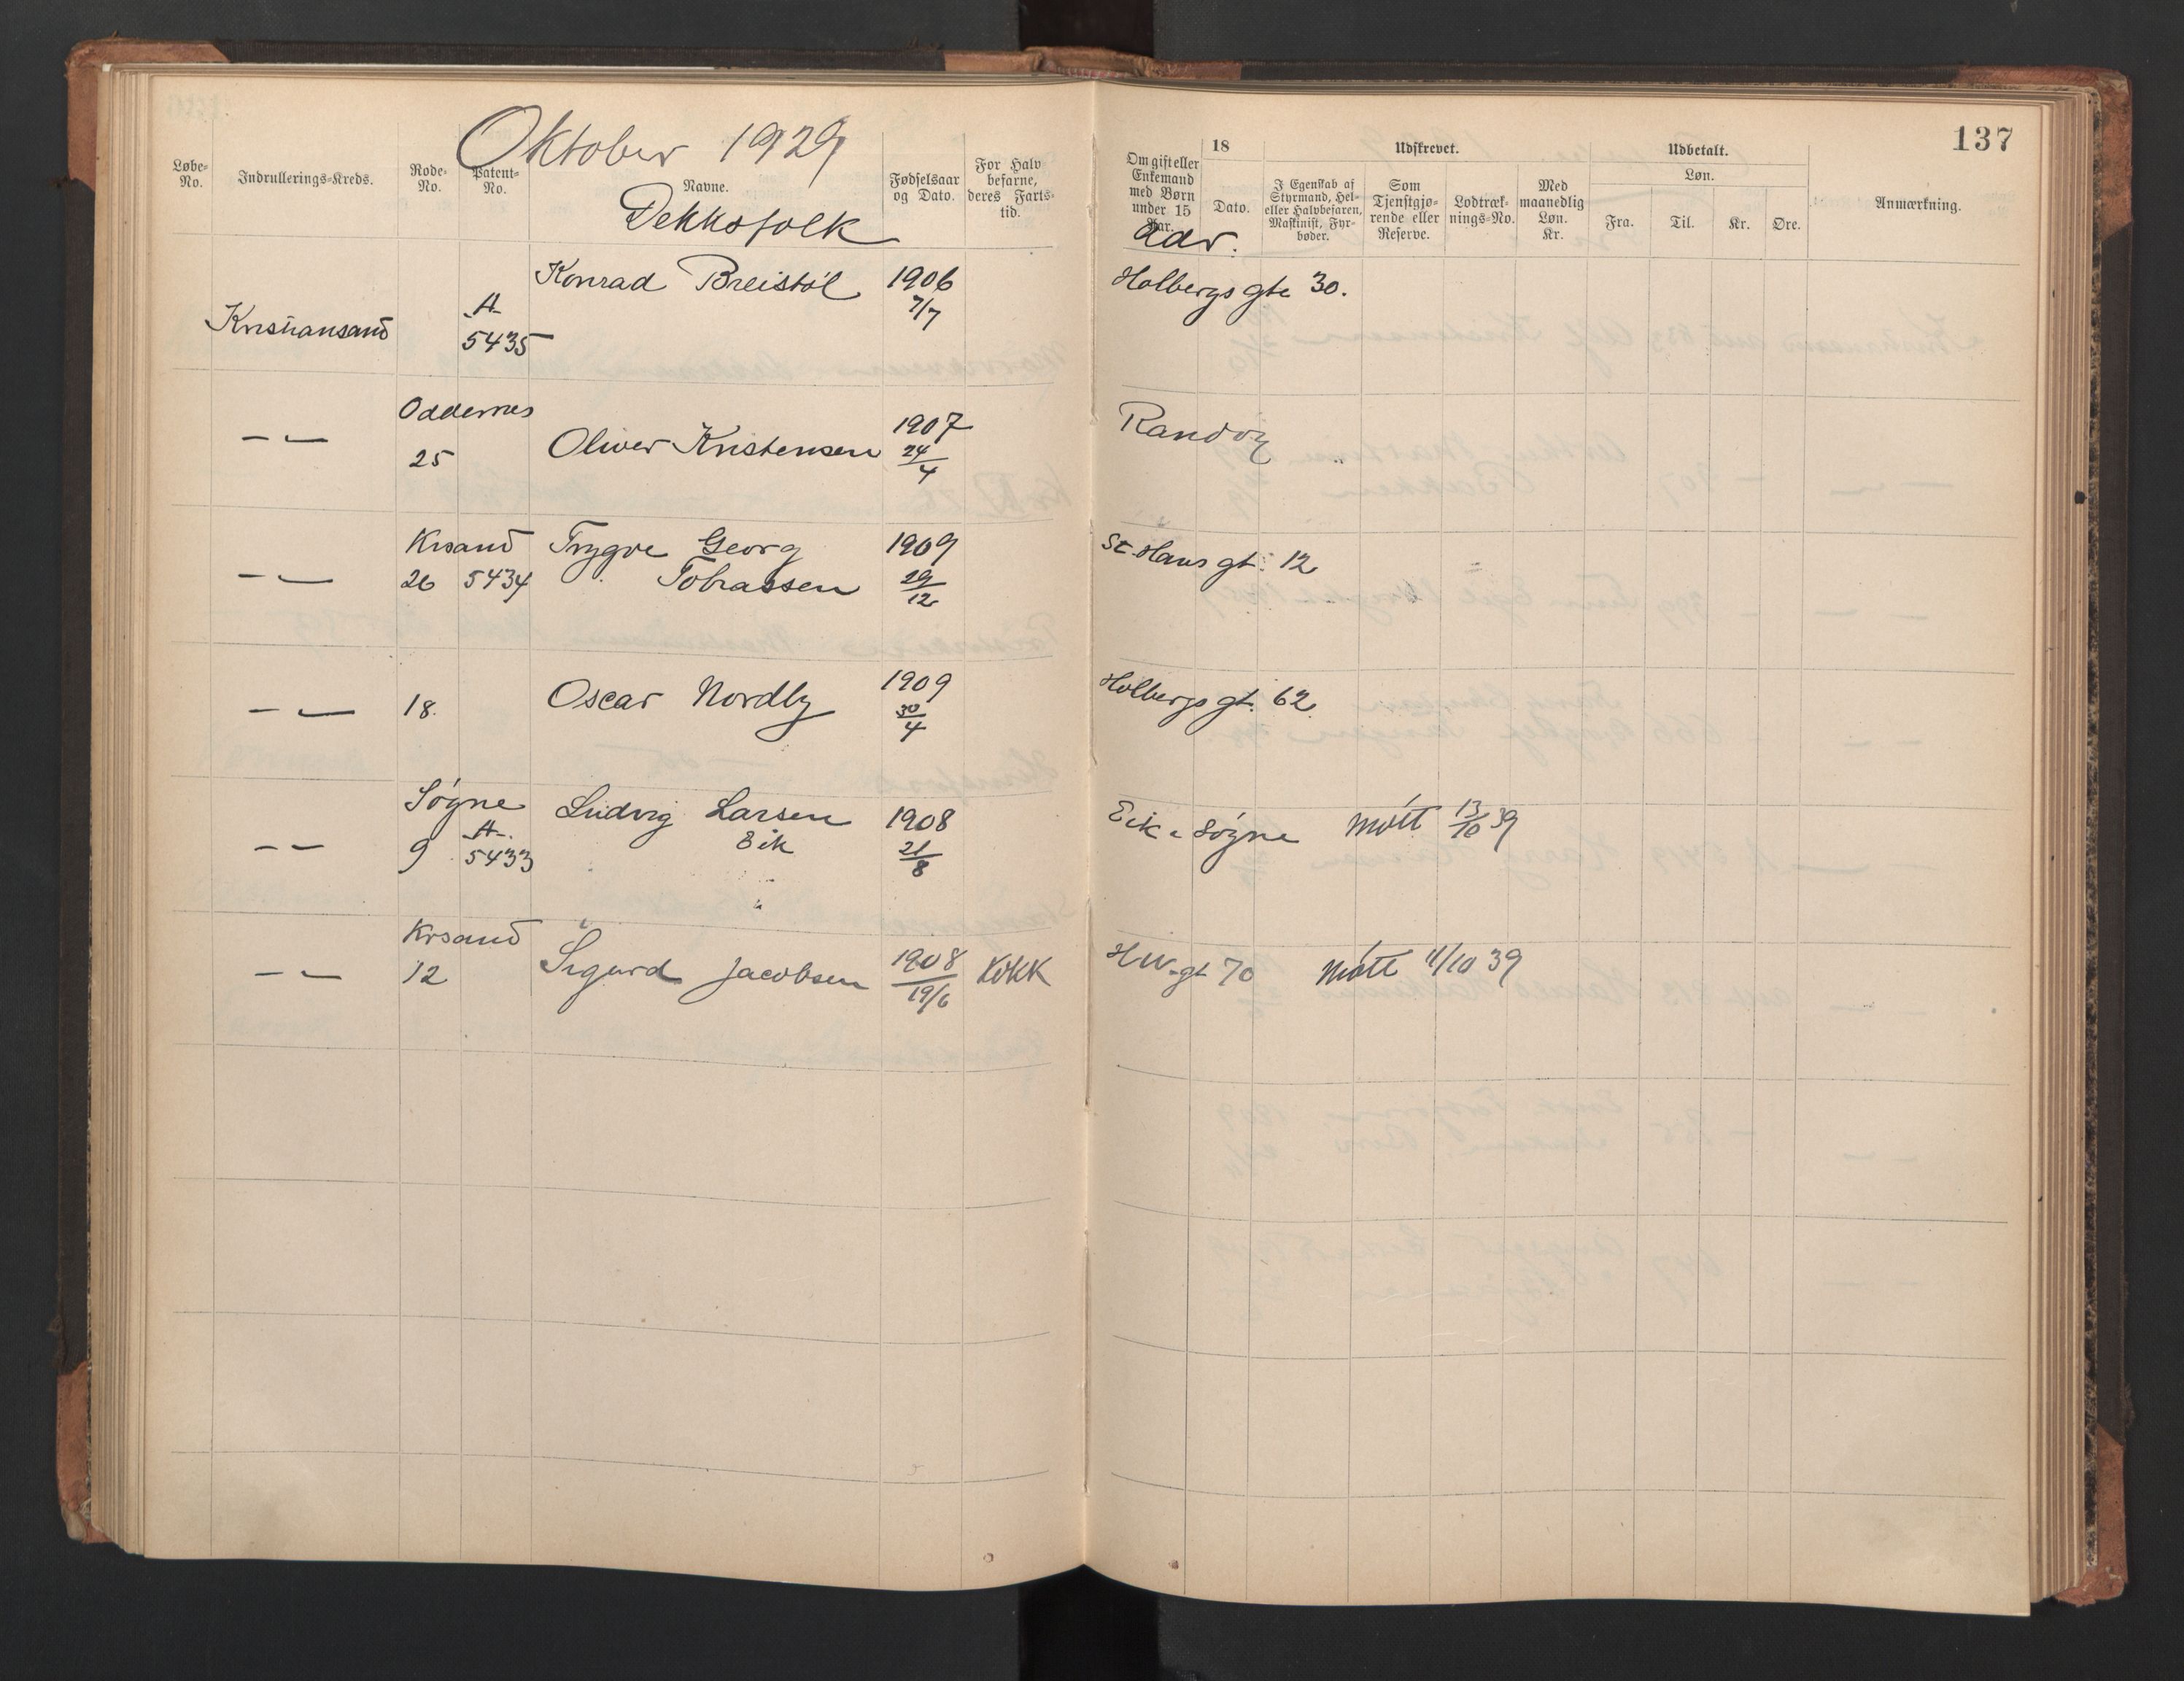 Oktober 1929
Dekksfolk
Løbe-No.
Indrullerings-Kreds.
Rode-No.
Patent-No.
Navne.
Fødselsaar og Dato.
For Halvbefarne, deres Fartstid.
Kristiansand
A
5435
Konrad Breistöl
1906
7/7
— —
Oddernes
25
Oliver Kristensen
1907
24/4
— —
Krsand
26 5434
Trygve Georg
Tobiassen
1909
29/12
— —
18.
Oscar Nordby
1909
30/4
— —
Søgne
9
A
5433
Ludvig Larsen
Eik
1908
21/8
— —
Krsand
12
Sigurd Jacobsen
1908
19/6
Kokk
137
Om gift eller Enkemand med Børn under 15 Aar.
Adr.
18
Dato.
Udskrevet.
I Egenskab af Styrmand, Hel- eller Halvbefaren, Maskinist, Fyrbøder.
Som Tjenstgjørende eller Reserve.
Lodtræknings-No.
Med maanedlig Løn. Kr.
Udbetalt.
Løn.
Fra.
Til.
Kr.
Øre.
Anmærkning.
Holbergs gte 30.
Randöy
St. Hans gt. 12
Holbergs gt. 62
Eik i Søgne møtt 13/10 39
H W. gt 70 møtt 11/10 39